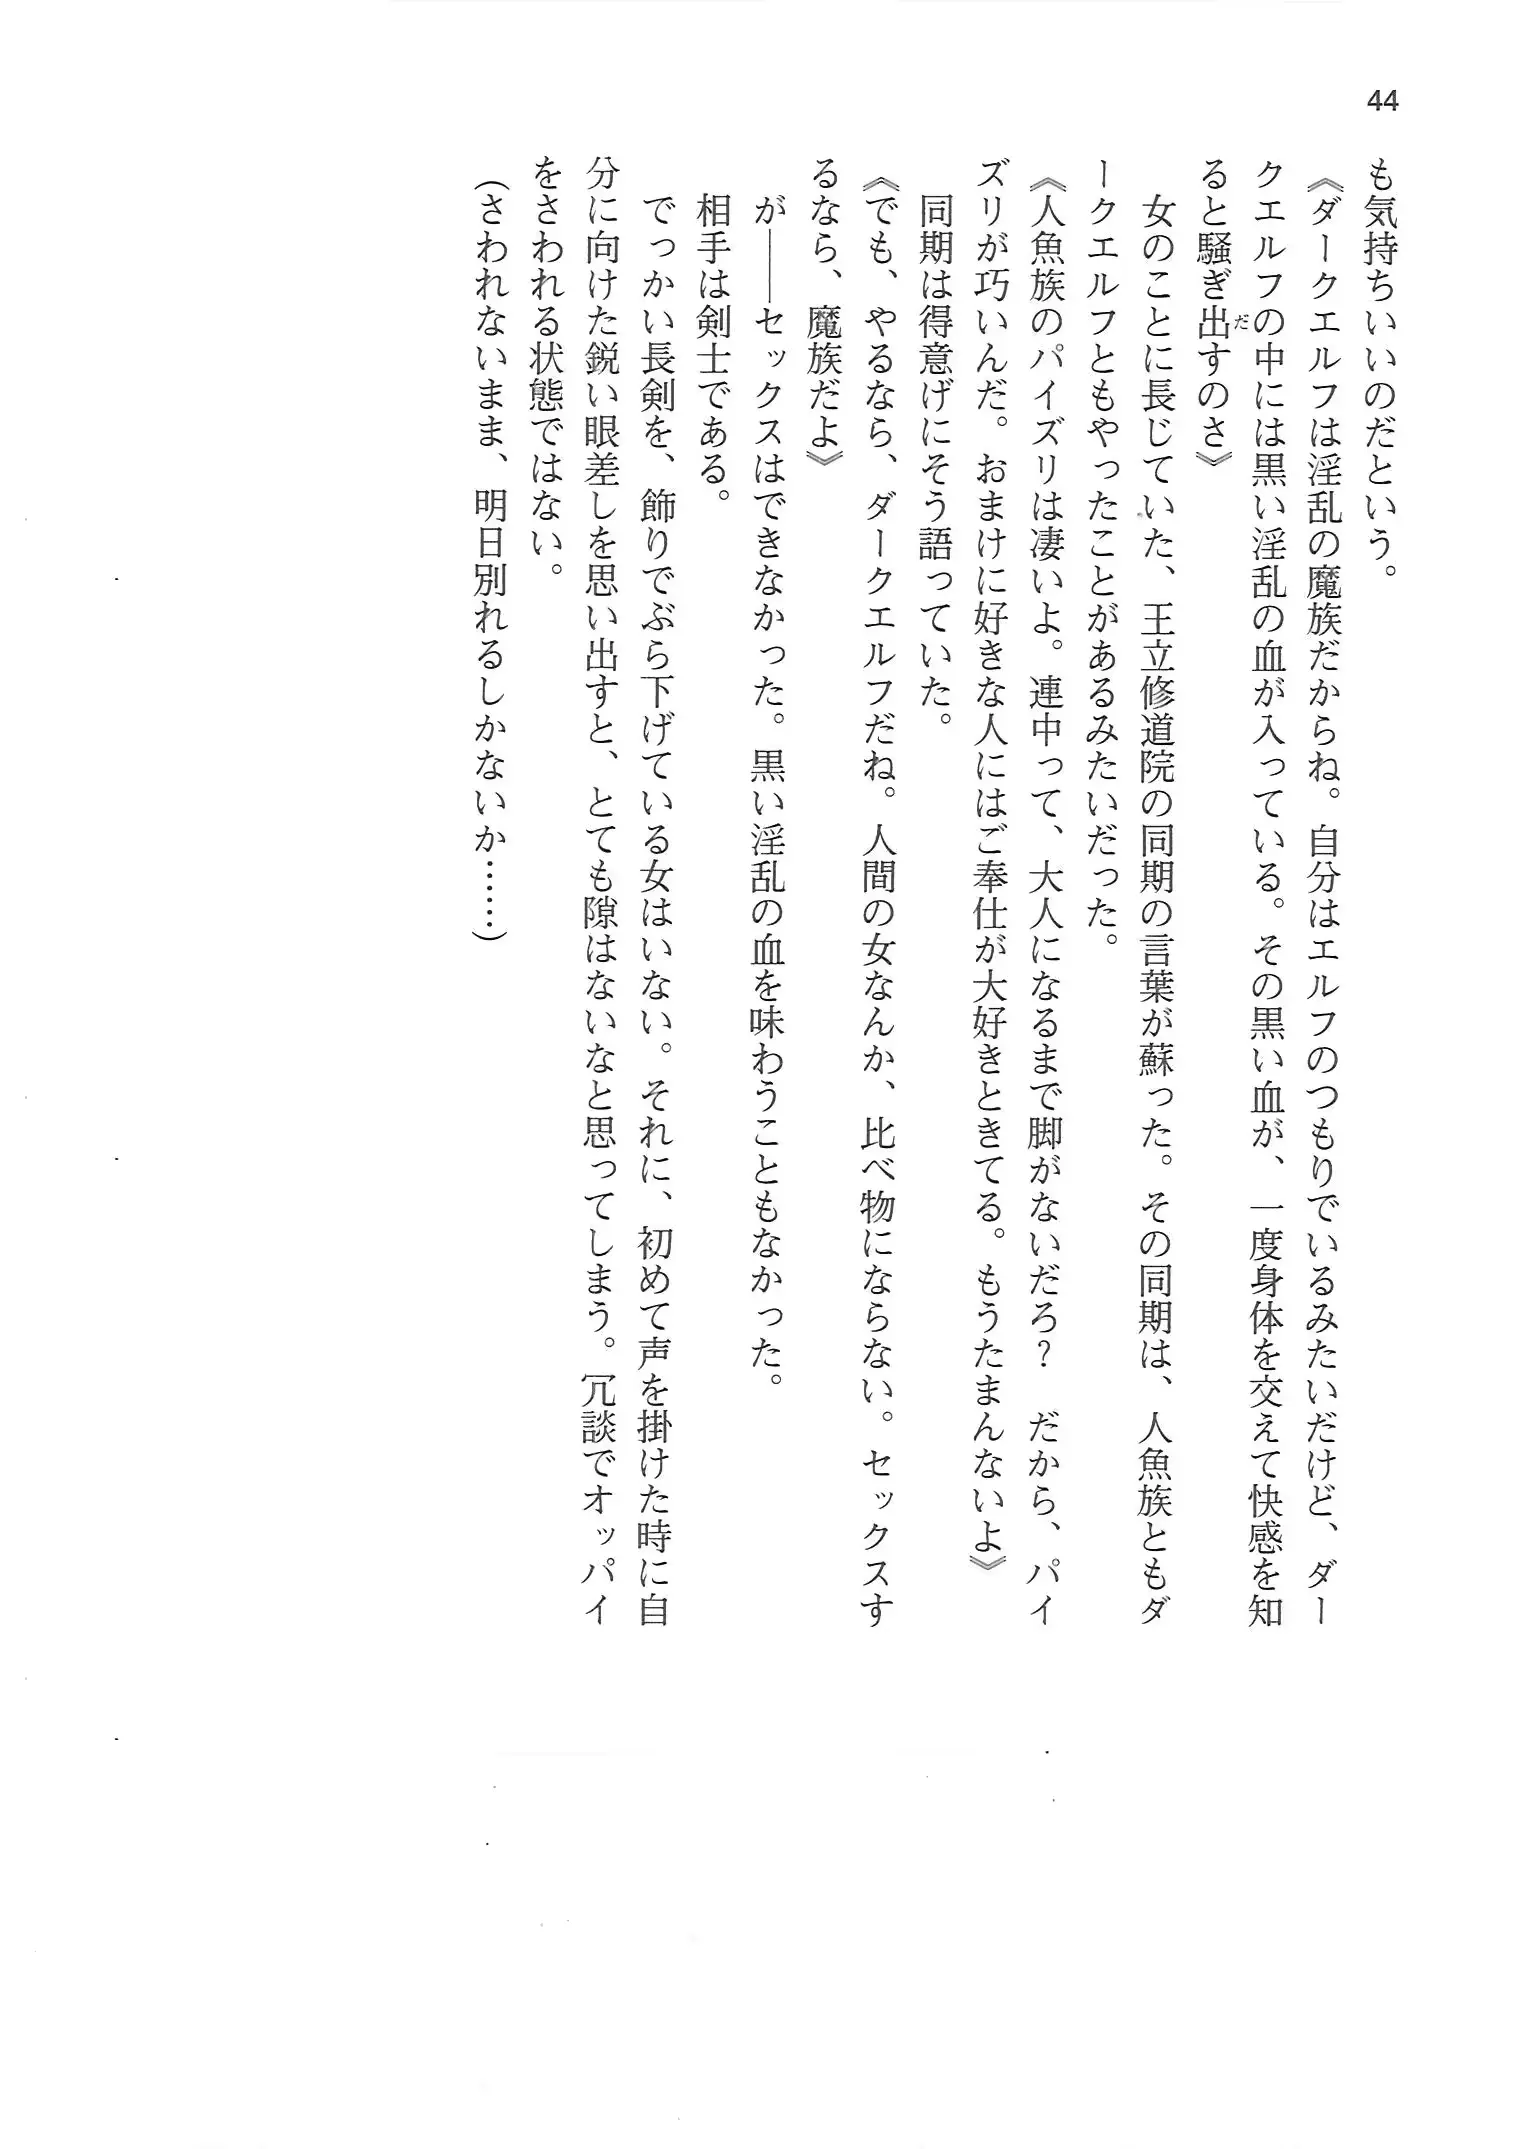 44
も気持ちいいのだという。
《ダークエルフは淫乱の魔族だからね。自分はエルフのつもりでいるみたいだけど、ダー
クエルフの中には黒い淫乱の血が入っている。その黒い血が、一度身体を交えて快感を知
ると騒ぎ出すのさ》
女のことに長じていた、王立修道院の同期の言葉が蘇った。その同期は、人魚族ともダ
ークエルフともやったことがあるみたいだった。
《人魚族のパイズリは凄いよ。連中って、大人になるまで脚がないだろ？　だから、パイ
ズリが巧いんだ。おまけに好きな人にはご奉仕が大好きときてる。もうたまんないよ》
同期は得意げにそう語っていた。
《でも、やるなら、ダークエルフだね。人間の女なんか、比べ物にならない。セックスす
るなら、魔族だよ》
が――セックスはできなかった。黒い淫乱の血を味わうこともなかった。
相手は剣士である。
でっかい長剣を、飾りでぶら下げている女はいない。それに、初めて声を掛けた時に自
分に向けた鋭い眼差しを思い出すと、とても隙はないなと思ってしまう。冗談でオッパイ
をさわれる状態ではない。
（さわれないまま、明日別れるしかないか……）